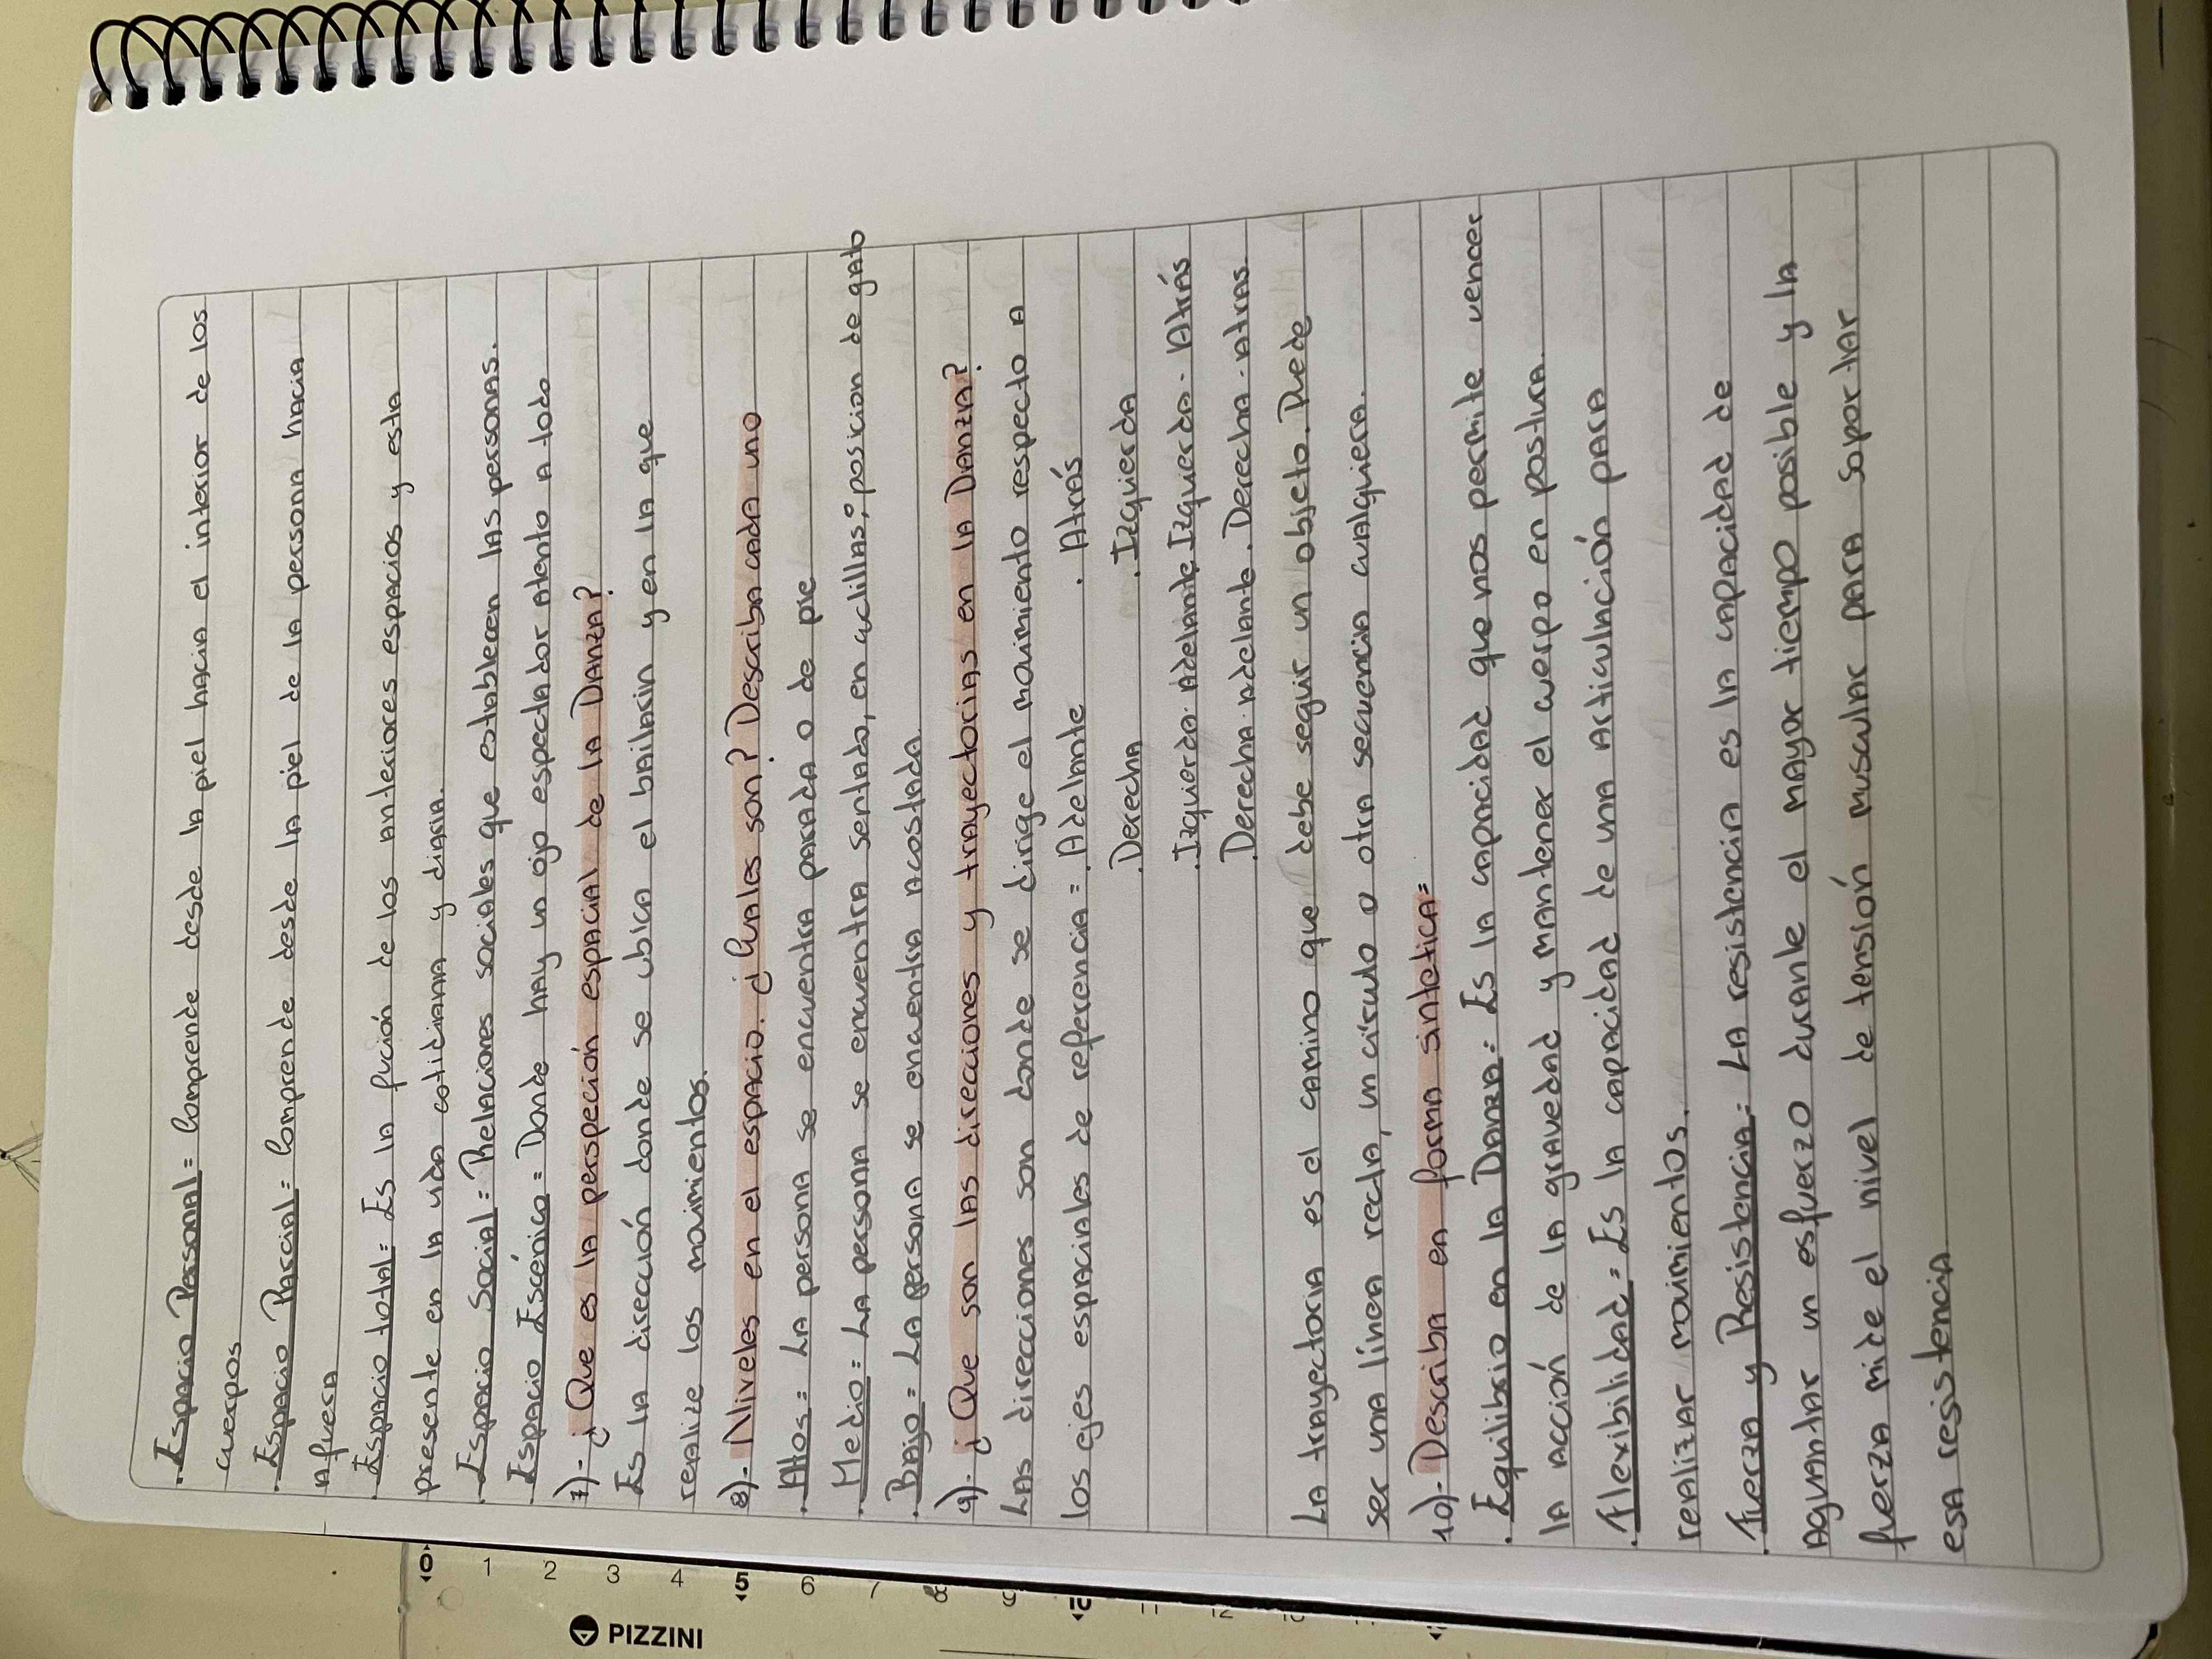 . Espacio Personal = Comprende desde la piel hacia el interior de los
cuerpos
. Espacio Parcial = Comprende desde la piel de la persona hacia
afuera
. Espacio total = Es la fución de los anteriores espacios y esta
presente en la vida cotidianna y diaria.
. Espacio Social = Relaciones sociales que establecen las personas.
. Espacio Escénico = Donde hay un ojo espectador atento a todo
7)- ¿Que es la perspeción espacial de la Danza?
Es la dirección donde se ubica el bailarin y en la que
realize los movimientos.
8)- Niveles en el espacio. ¿Cuales son? Describa cada uno
. Altos = La persona se encuentra parada o de pie
. Medio = La persona se encuentra sentado, en cuclillas; posicion de gato
. Bajo = La persona se encuentra acostada
9)- ¿Que son las direcciones y trayectorias en la Danza?
Las direcciones son donde se dirige el movimiento respecto a
los ejes espaciales de referencia = . Adelante . Atrás
. Derecha . Izquierda
. Izquierda-Adelante. Izquierda-Atrás
. Derecha-adelante. Derecha-atras.
La trayectoria es el camino que debe seguir un objeto. Puede
ser una línea recta, un círculo o otra secuencia cualquiera.
10)- Describa en forma sintetica =
. Equilibrio en la Danza = Es la capacidad que nos permite vencer
la acción de la gravedad y mantener el cuerpo en postura.
. Flexibilidad = Es la capacidad de una articulación para
realizar movimientos.
. Fuerza y Resistencia = La resistencia es la capacidad de
aguantar un esfuerzo durante el mayor tiempo posible y la
fuerza mide el nivel de tensión muscular para soportar
esa resistencia
0 1 2 3 4 5 6 7 8 9 10 11 12
PIZZINI